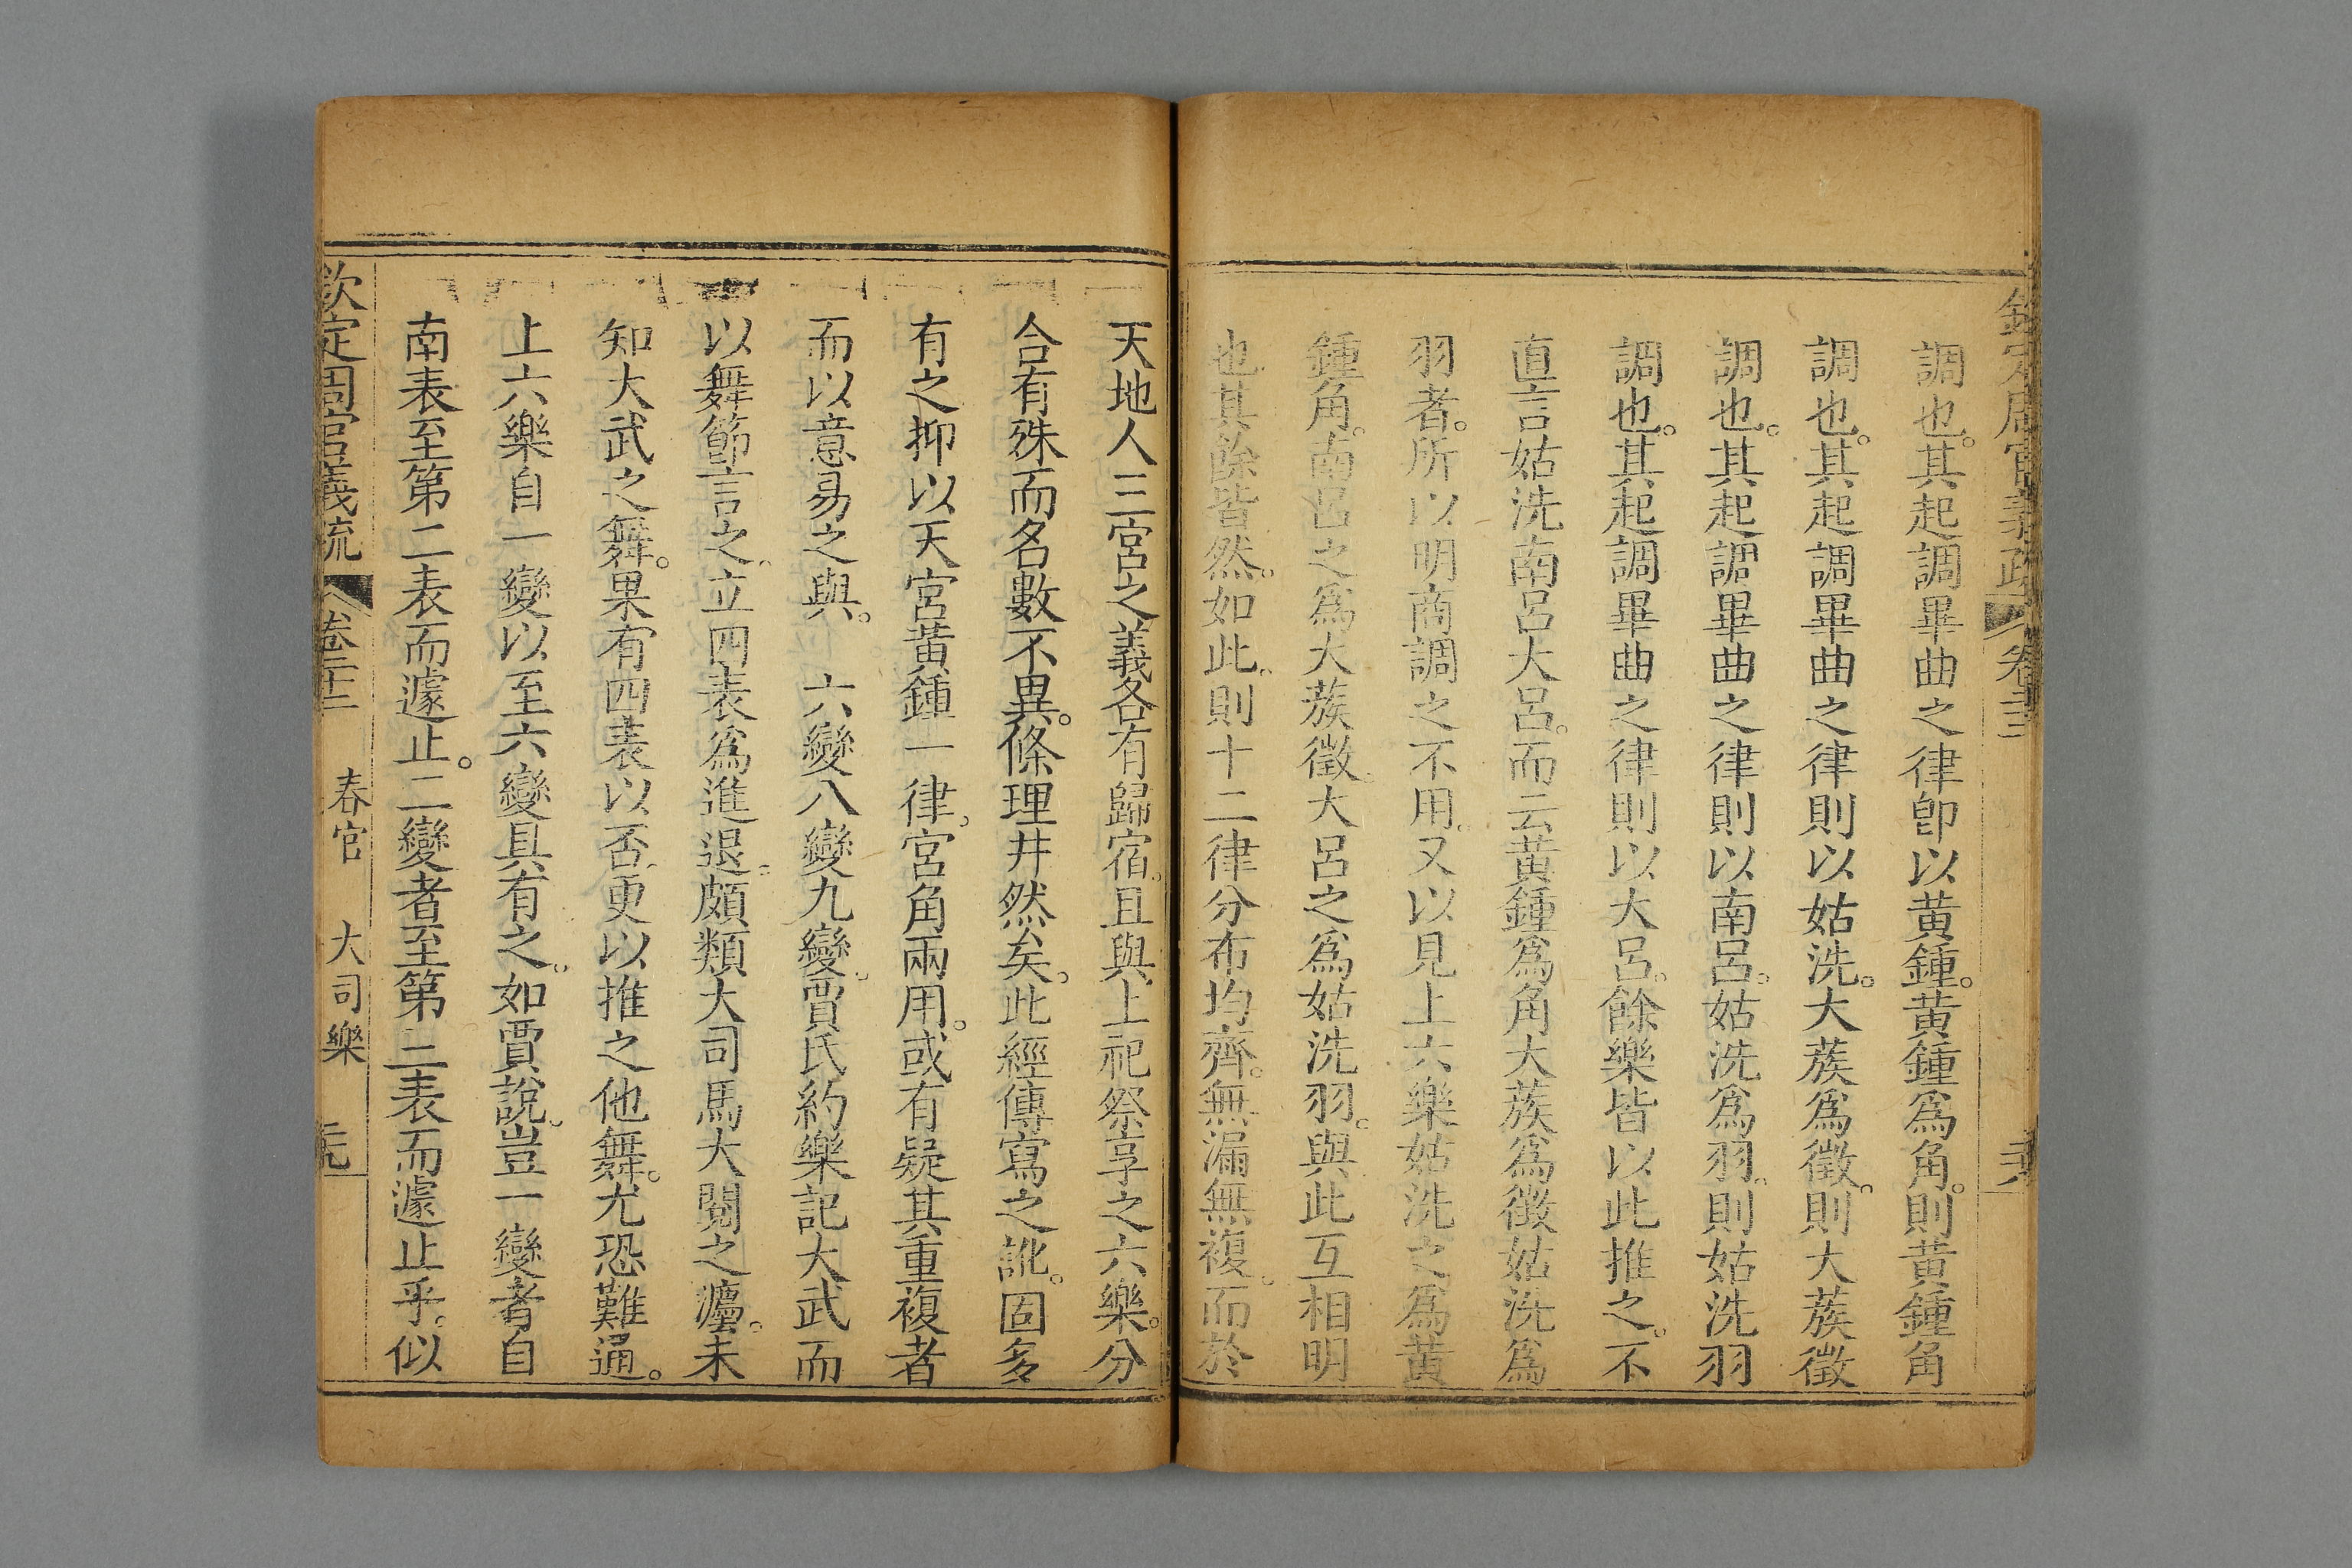 欽定周官義疏 卷二十二 天
調也。其起調畢曲之律卽以黃鍾。黃鍾爲角。則黃鍾角
調也。其起調畢曲之律則以姑洗。大蔟爲徵。則大蔟徵
調也。其起調畢曲之律則以南呂。姑洗爲羽。則姑洗羽
調也。其起調畢曲之律則以大呂。餘樂皆以此推之。不
直言姑洗南呂大呂。而云黃鍾爲角大蔟爲徵姑洗爲
羽者。所以明商調之不用。又以見上六樂姑洗之爲黃
鍾角。南呂之爲大蔟徵。大呂之爲姑洗羽。與此互相明
也。其餘皆然。如此。則十二律分布均齊。無漏無複。而於
天地人三宮之義各有歸宿。且與上祀祭享之六樂。分
合有殊而名數不異。條理井然矣。此經傳寫之訛。固多
有之抑以天宮黃鍾一律。宮角兩用。或有疑其重複者
而以意易之與。 六變八變九變。賈氏約樂記大武而
以舞節言之。立四表爲進退。頗類大司馬大閱之灋。未
知大武之舞。果有四表以否。更以推之他舞。尤恐難通。
上六樂自一變以至六變具有之。如賈說。豈一變者自
南表至第二表而遽止。二變者至第三表而遽止乎。似
欽定周官義疏 卷二十二 春官 大司樂 元